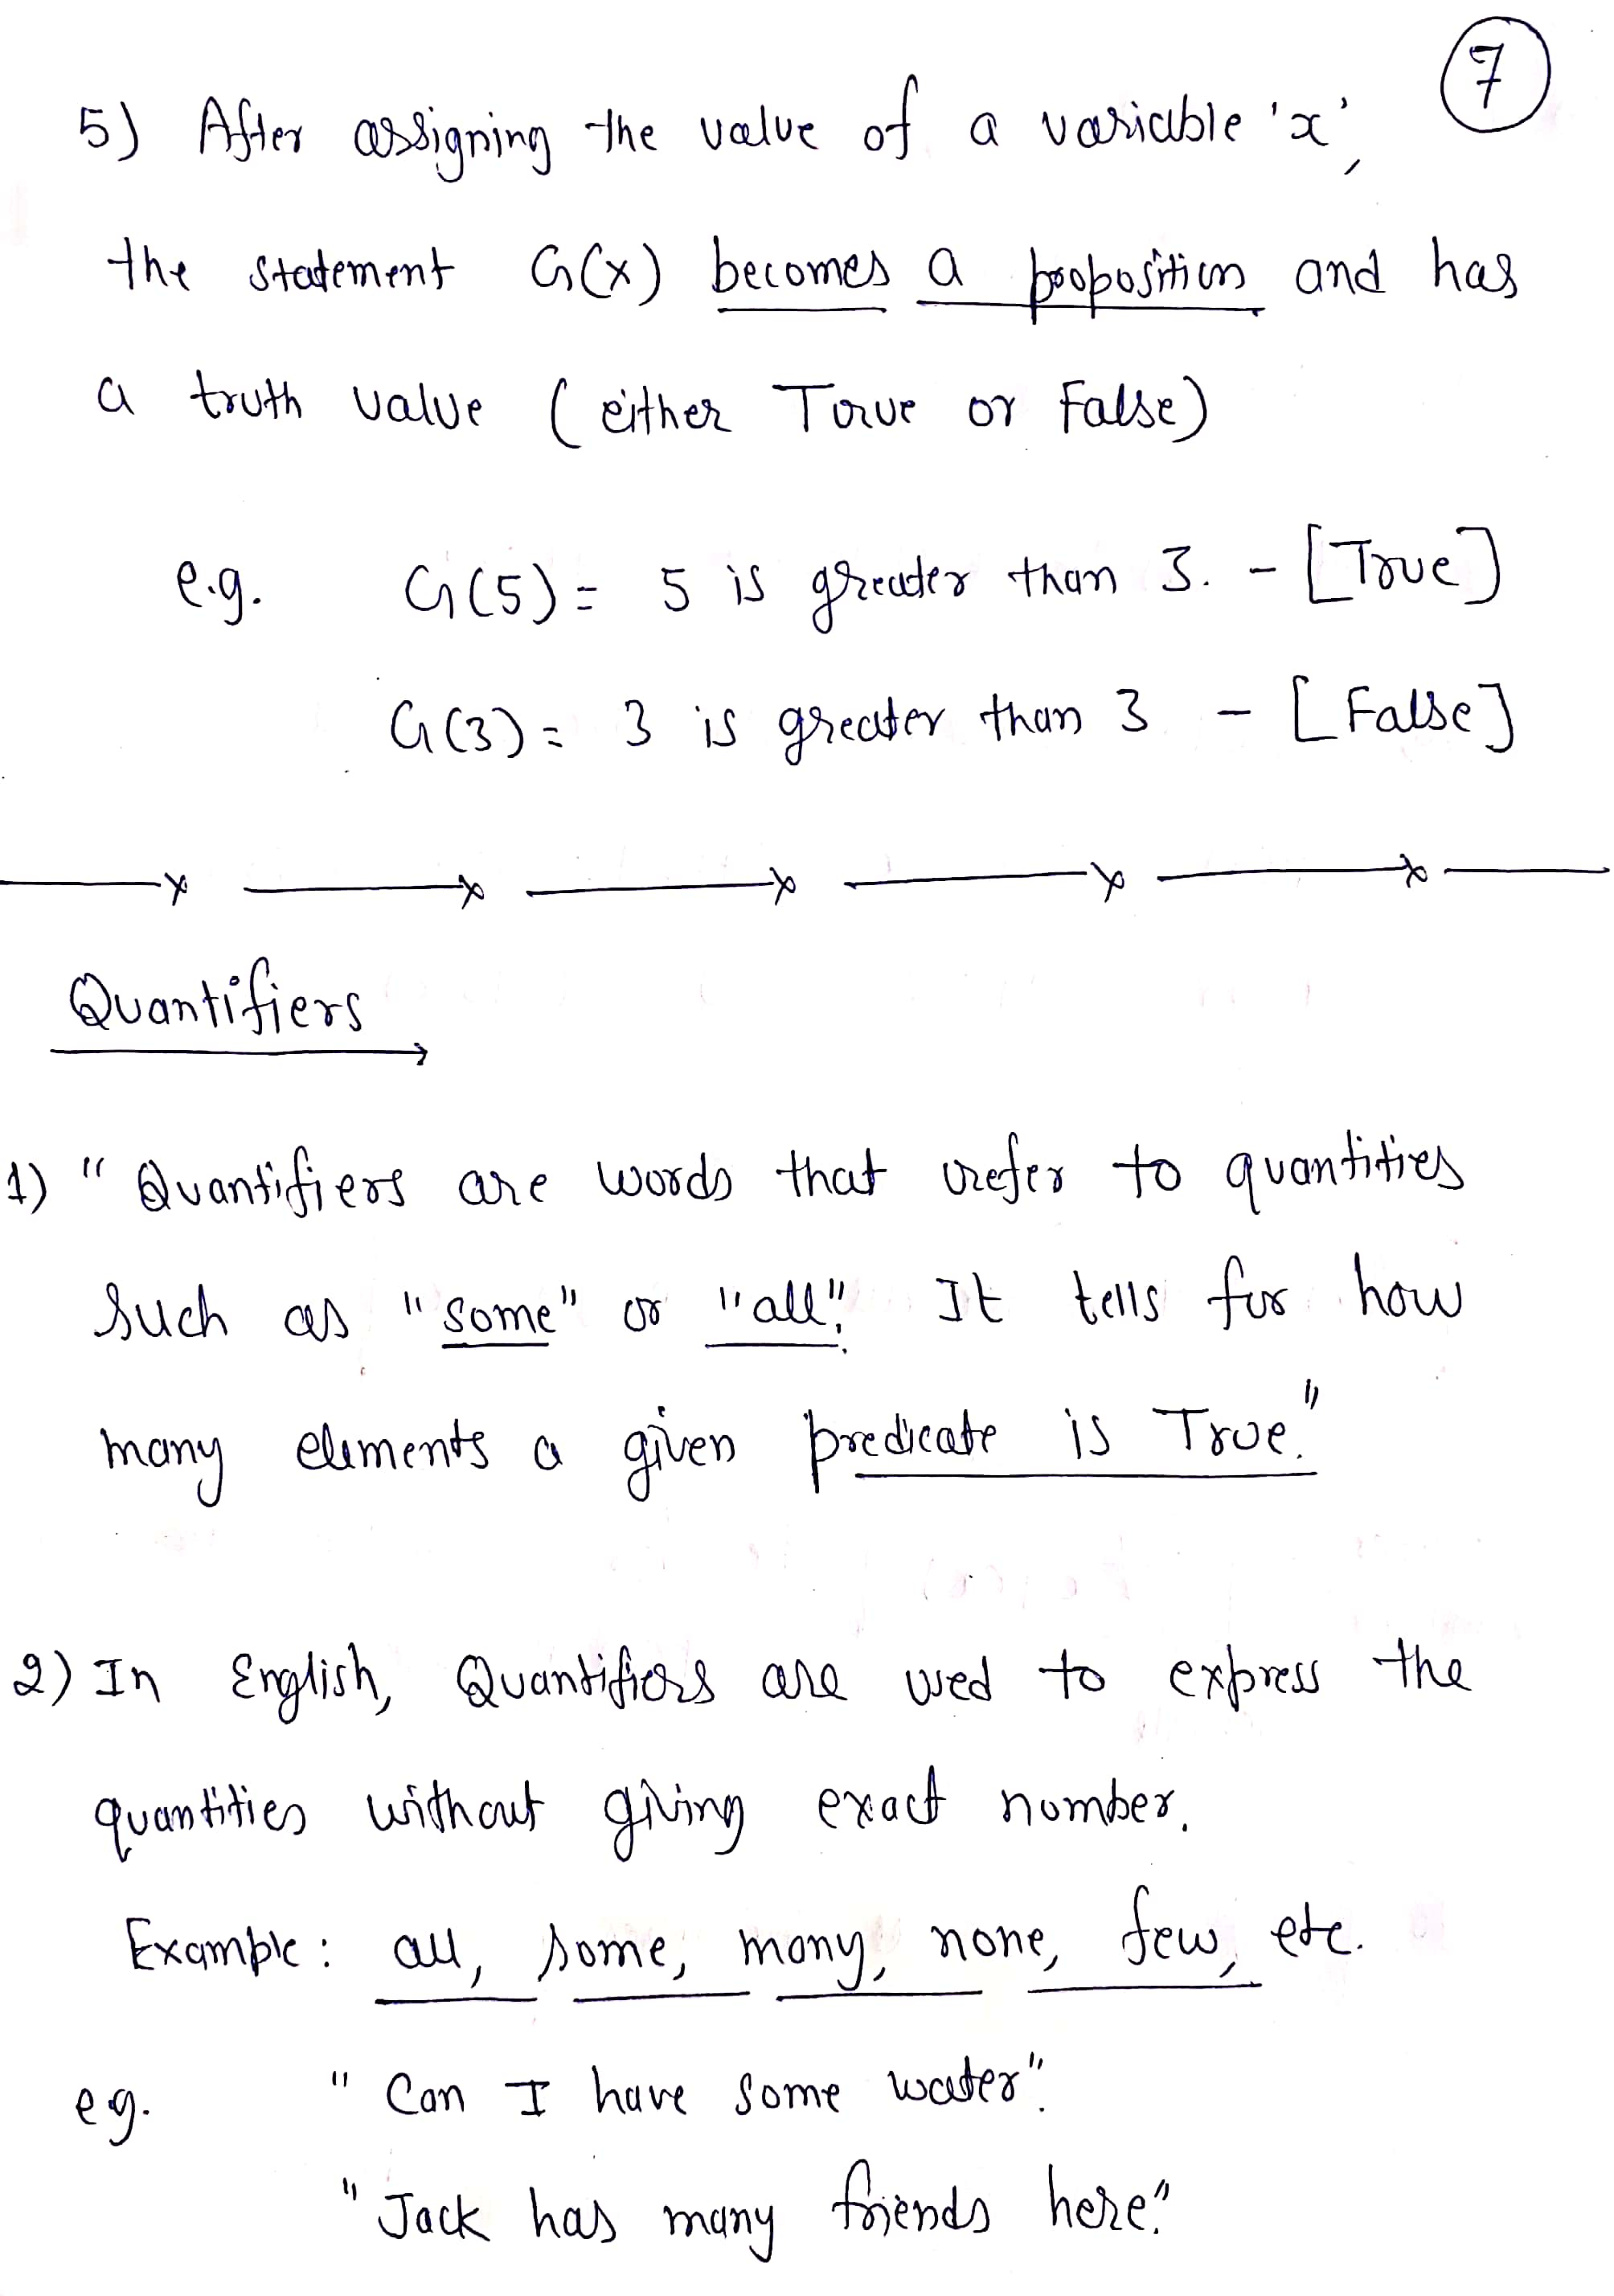 7
5) After assigning the value of a variable 'x',
the statement G(x) becomes a proposition and has
a truth value (either True or False)
e.g. G(5) = 5 is greater than 3. - [True]
G(3) = 3 is greater than 3 - [False]
Quantifiers
1) " Quantifiers are words that refer to quantities
such as "some" or "all". It tells for how
many elements a given predicate is True."
2) In English, Quantifiers are used to express the
quantities without giving exact number.
Example: all, some, many, none, few, etc.
eg. "Can I have some water".
"Jack has many friends here".